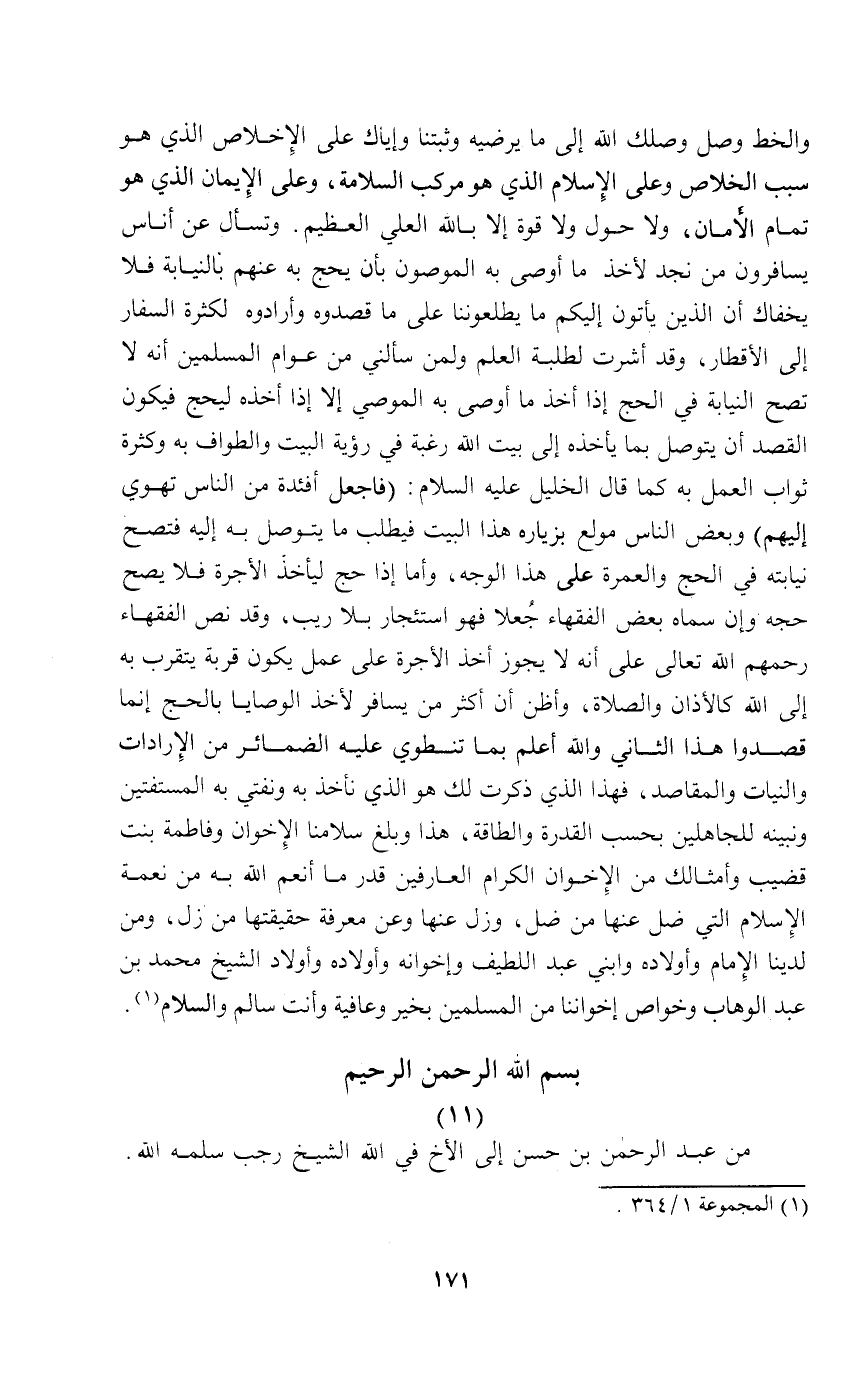 والخط وصل وصلك الله إلى ما يرضيه وثبتنا وإياك على الإخلاص الذي هو
سبب الخلاص وعلى الإسلام الذي هو مركب السلامة، وعلى الإيمان الذي هو
تمام الأمان، ولا حول ولا قوة إلا بالله العلي العظيم. وتسأل عن أناس
يسافرون من نجد لأخذ ما أوصى به الموصون بأن يحج به عنهم بالنيابة فلا
يخفاك أن الذين يأتون إليكم ما يطلعوننا على ما قصدوه وأرادوه لكثرة السفار
إلى الأقطار، وقد أشرت لطلبة العلم ولمن سألني من عوام المسلمين أنه لا
تصح النيابة في الحج إذا أخذ ما أوصى به الموصي إلا إذا أخذه ليحج فيكون
القصد أن يتوصل بما يأخذه إلى بيت الله رغبة في رؤية البيت والطواف به وكثرة
ثواب العمل به كما قال الخليل عليه السلام: (فاجعل أفئدة من الناس تهوي
إليهم) وبعض الناس مولع بزياره هذا البيت فيطلب ما يتوصل به إليه فتصح
نيابته في الحج والعمرة على هذا الوجه، وأما إذا حج ليأخذ الأجرة فلا يصح
حجه وإن سماه بعض الفقهاء جُعلا فهو استئجار بلا ريب، وقد نص الفقهاء
رحمهم الله تعالى على أنه لا يجوز أخذ الأجرة على عمل يكون قربة يتقرب به
إلى الله كالأذان والصلاة، وأظن أن أكثر من يسافر لأخذ الوصايا بالحج إنما
قصدوا هذا الثاني والله أعلم بما تنطوي عليه الضمائر من الإرادات
والنيات والمقاصد، فهذا الذي ذكرت لك هو الذي نأخذ به ونفتي به المستفتين
ونبينه للجاهلين بحسب القدرة والطاقة، هذا وبلغ سلامنا الإخوان وفاطمة بنت
قضيب وأمثالك من الإخوان الكرام العارفين قدر ما أنعم الله به من نعمة
الإسلام التي ضل عنها من ضل، وزل عنها وعن معرفة حقيقتها من زل، ومن
لدينا الإمام وأولاده وابني عبد اللطيف وإخوانه وأولاده وأولاد الشيخ محمد بن
عبد الوهاب وخواص إخواننا من المسلمين بخير وعافية وأنت سالم والسلام(١).
بسم الله الرحمن الرحيم
(١١)
من عبد الرحمٰن بن حسن إلى الأخ في الله الشيخ رجب سلمه الله.
(١) المجموعة ٣٦٤/١ .
١٧١